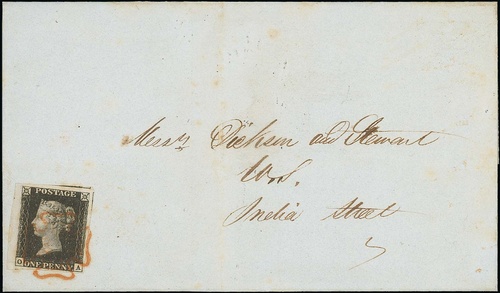 Messrs Dickson and Stewart
W.S.
India Street
POSTAGE
ONE PENNY
O A